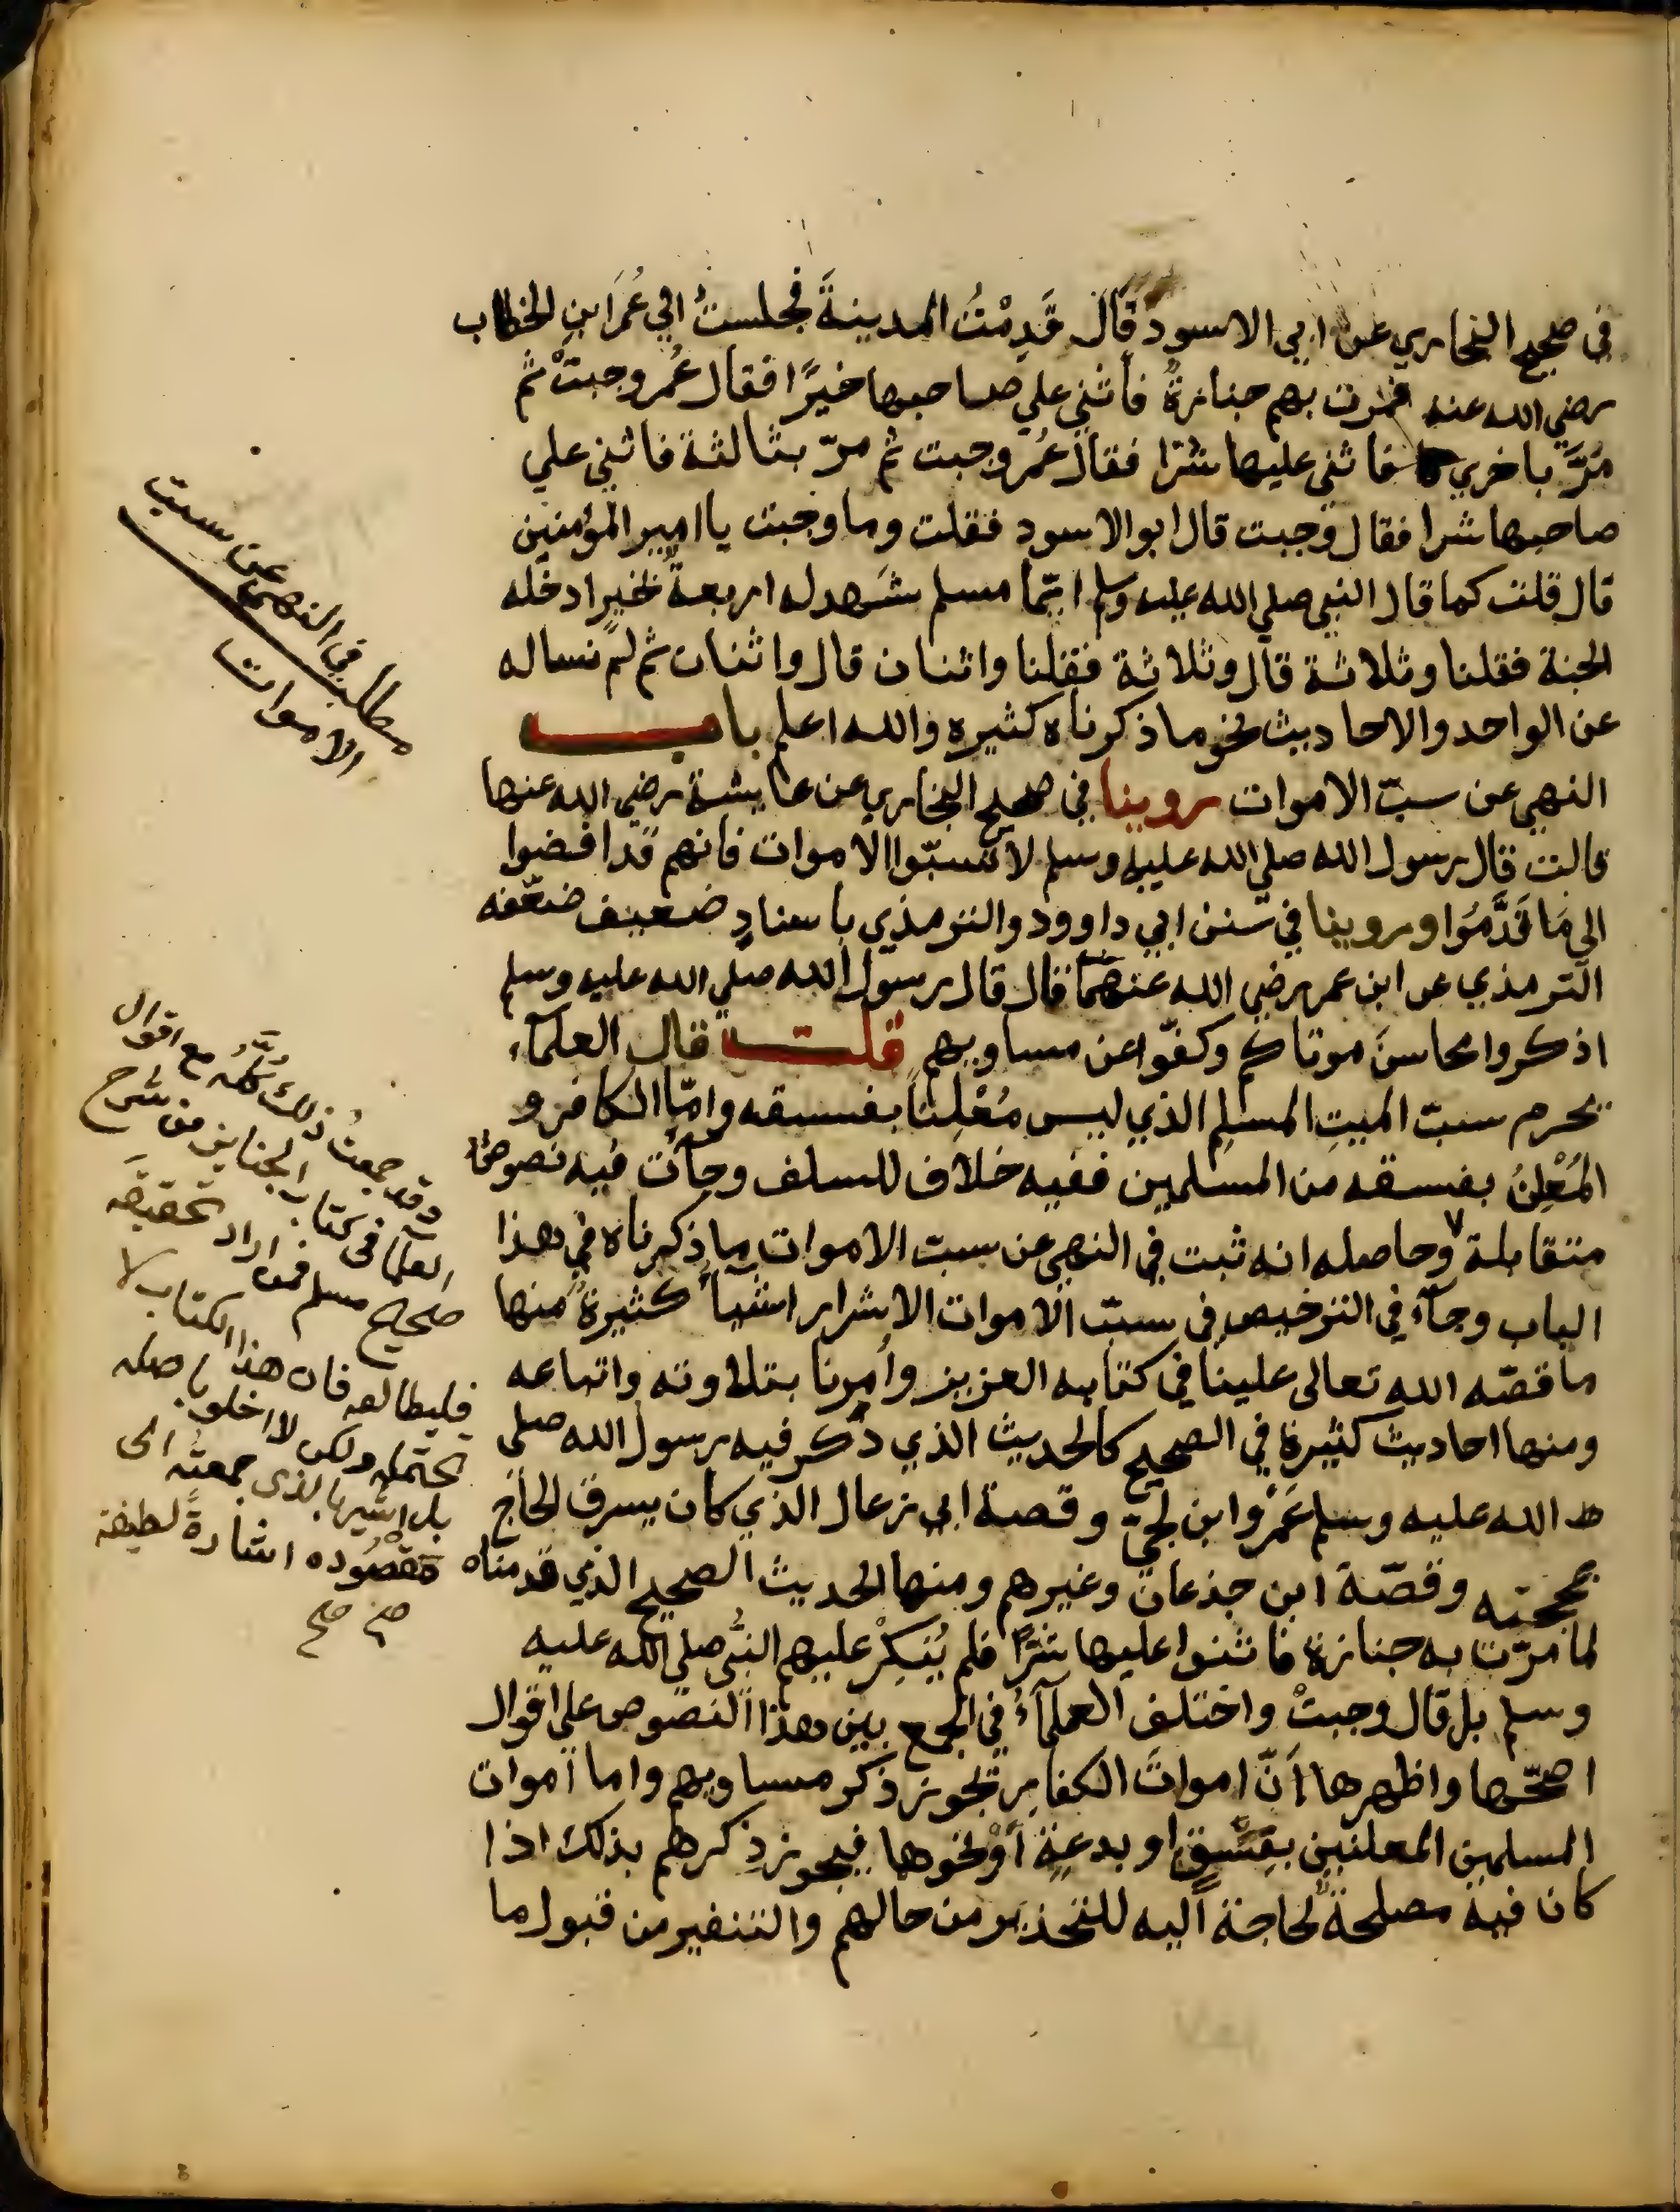 في صحيح البخاري عن ابي الاسود قَالَ قَدِمْتُ المدينةَ فجلستُ الي عُمَرَ ابنِ الخطاب
رضي الله عنه فمرت بهم جنازةٌ فأثني علي صاحبها خيرًا فقال عُمر وجبتْ ثم
مُرَّ باخري فاثني عليها شرًا فقال عُمر وجبت ثم مرّ بثالثة فاثني علي
صاحبها شرا فقال وجبت قال ابو الاسود فقلت وما وجبت يا امير المؤمنين
قال قلت كما قال النبي صلي الله عليه وسلم ايّما مسلم شَهد له اربعةٌ بخيرٍ ادخله
الجنة فقلنا وثلاثة قال وثلاثة فقلنا واثنان قال واثنان ثم لم نساله
عن الواحد والاحاديث بنحو ما ذكرناه كثيره والله اعلم باب
النهي عن سبّ الاموات روينا في صحيح البخاري عن عايشة رضي الله عنها
قالت قال رسول الله صلي الله عليه وسلم لا تسبّوا الاموات فانهم قد افضوا
الي مَا قَدَّمُوا وروينا في سنن ابي داوود والترمذي باسنادٍ ضعيف ضعّفه
الترمذي عن ابن عمر رضي الله عنهما قال قال رسول الله صلي الله عليه وسلم
اذكروا محاسنَ موتاكم وكفّوا عن مساويهم قلت قال العلمآء
يحرم سبّ الميتِ المسلمِ الذي ليس مُعْلِنًا بفسقه وامّا الكافر و
المُعْلِنُ بفسقه من المسلمين ففيه خلاف للسلف وجآت فيه نصوصٌ
متقابلة وحاصله انه ثبت في النهي عن سبّ الاموات ما ذكرناه في هذا
الباب وجآء في الترخيص في سبّ الاموات الاشرار اشيآء كثيرةٌ منها
ما قصّه الله تعالى علينا في كتابه العزيز وأمرنا بتلاوته واتباعه
ومنها احاديث كثيرة في الصحيح كالحديث الذي ذكر فيه رسول الله صلي
الله عليه وسلم عَمْرو ابن لحيّ وقصة ابي زعال الذي كان يسرق الحاج
بمحجنه وقصّة ابن جذعان وغيرهم ومنها الحديث الصحيح الذي قدمناه
لما مرّت به جنازة فاثنوا عليها شرًّا فلم يُنكِرْ عليهم النبُّي صلي الله عليه
وسلم بل قال وجبتْ واختلف العلمآءُ في الجمع بين هذا النصوص علي اقوال
اصحّها واظهرها أنّ امواتَ الكفار تجوز ذكر مساويهم واما أموات
المسلمين المعلنين بفِسْقٍ او بدعةٍ أوْ نحوها فيجوز ذكرهم بذلك اذا
كان فيه مصلحةٌ لحاجة اليه للتحذير من حالهم والتنفير من قبول ما
مطلب في النهي عن سب
الاموات
وقد جمعتُ ذلك كُلَّهُ مع اقوال
العلما في كتاب الجنايز من شرح
صحيح مسلم فمن اراد تحقيقَه
فليطالعه فان هذا الكتاب لا
تحتمله ولكن لا اخلو باصله
بل اشير بالذي جمعته الى
مقصُوده اشارةً لطيفة
صح صح